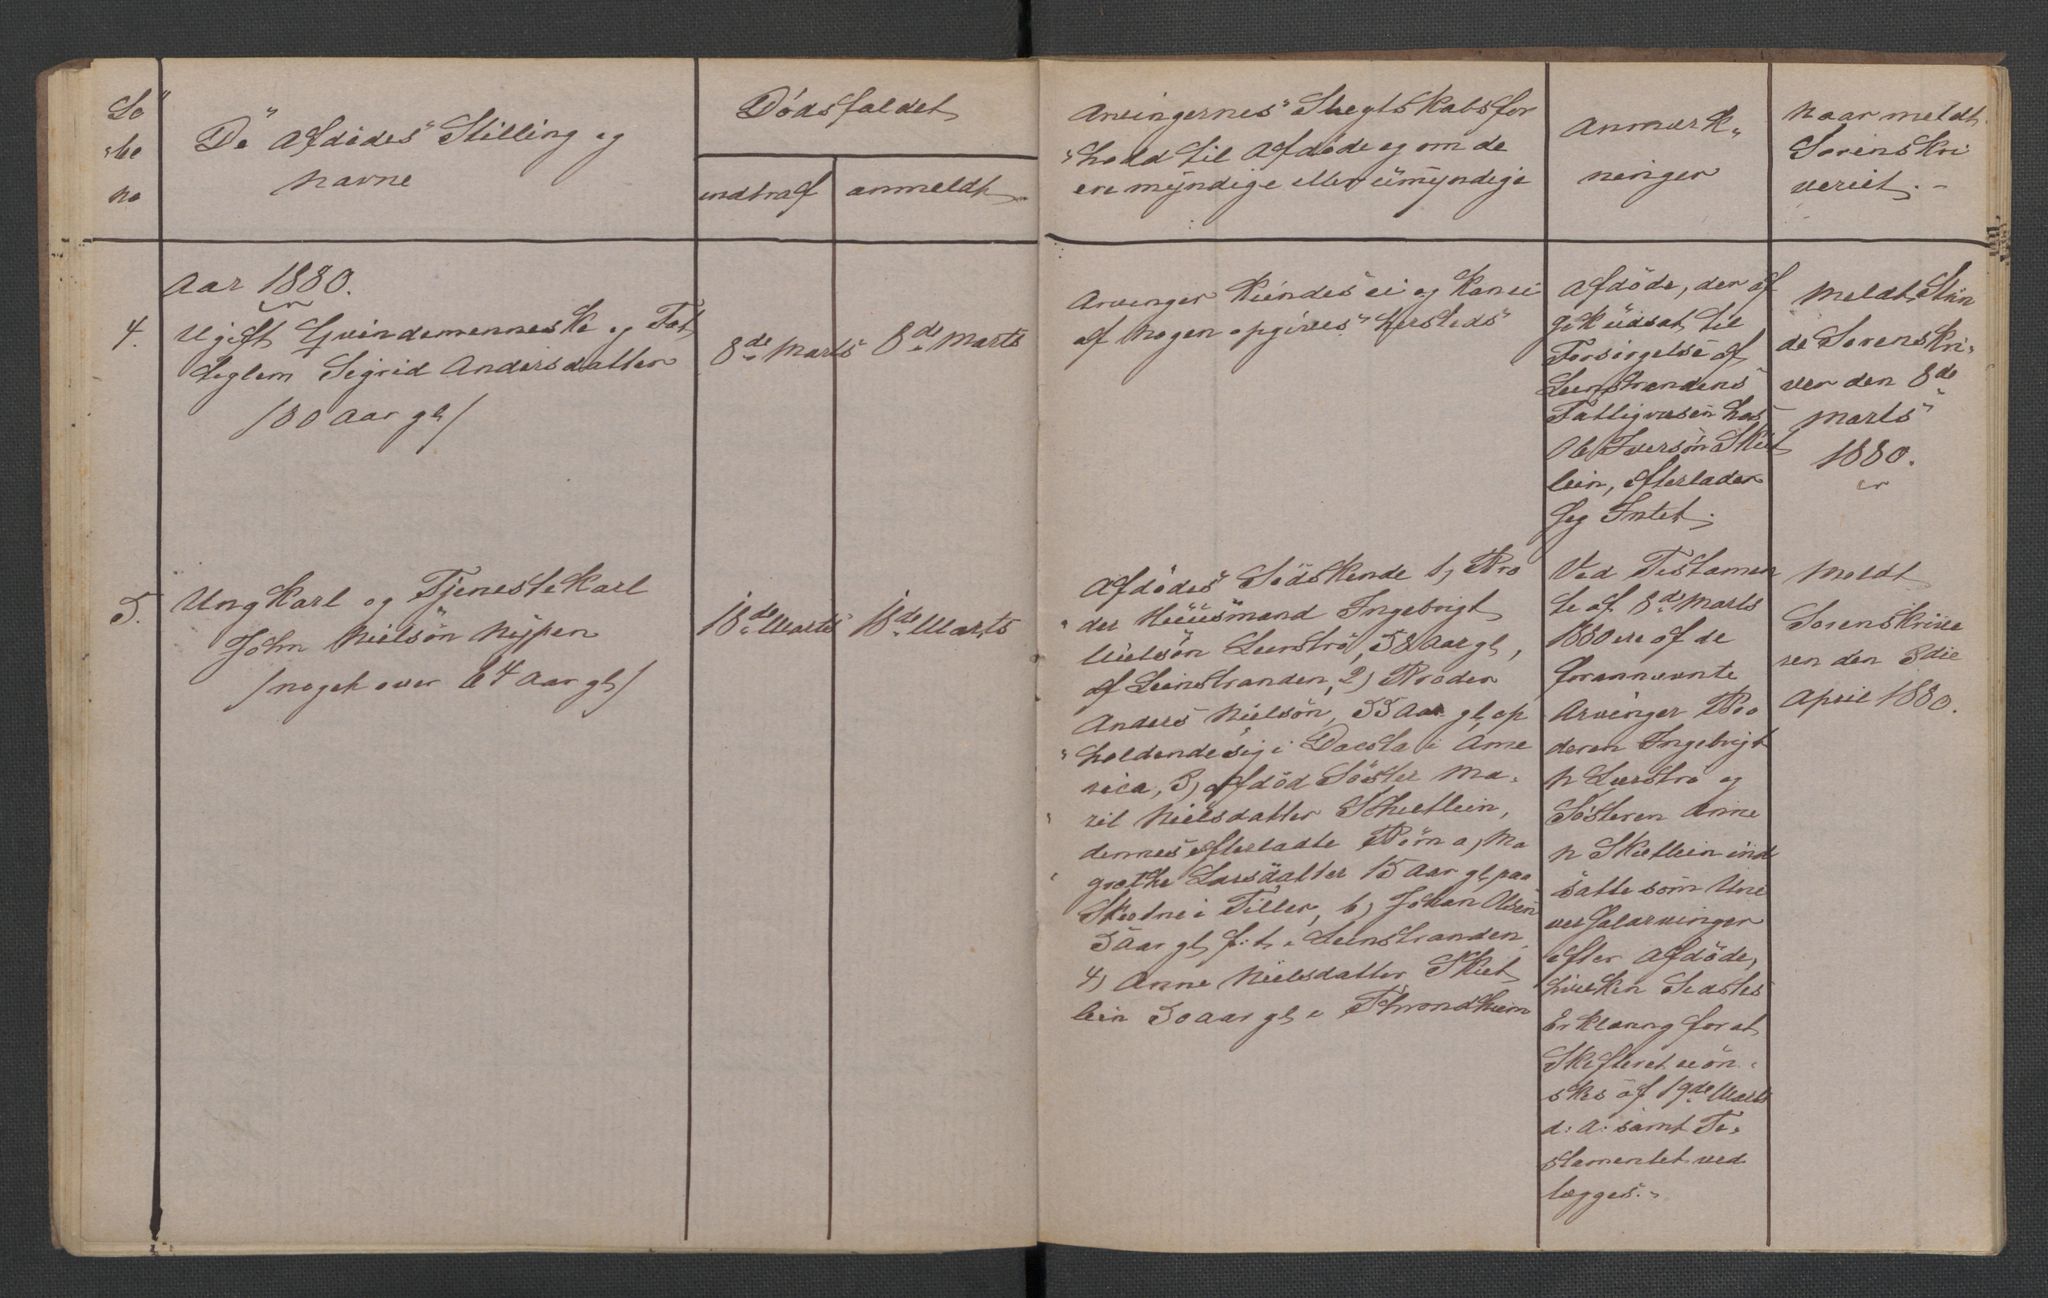 Lo
be
no
De afdödes Stilling og
Navne
Dödsfaldet
indtraf
anmeldt
Arvingernes Slegtskabsfor
hold til Afdöde og om de
ere myndige eller umyndige
Anmærk-
ninger
Naar meldt
Sorenskri
veriet. -
Aar 1880.
4.
Ugift Qvindemenneske og Fat
tiglem Sigrid Andersdatter
/80 Aar gl/
8de Marts
8de Marts
Arvinger kiendes ei og kan ei
af nogen opgives hersteds
Afdöde, der af
gik udsat til
Forsörgelse af
Leinstrandens
Fattigvæsen hos
Ole Iversön Skiet
lein, efterlader
sig Intet.
Meldt Strin
de Sorenskri-
ver den 8de
Marts
1880.
5.
Ungkarl og Tjenestekarl
John Nielsön Nypen
/noget over 64 Aar gl/
18de Marts
18de Marts
Afdödes Södskende 1, Bro
der Huusmand Ingebrigt
Nielsön Leerströ, 58 Aar gl,
af Leinstranden, 2) Broder
Anders Nielsön, 55 Aar gl, op
holdende sig i Dacota i Ame
rica, 3, afdöd Söster Ma-
rit Nielsdatter Skietlein,
dennes efterladte Börn a, Ma
grethe Larsdatter 15 Aar gl, paa
i Tiller, b, Johan Olsen
5 Aar gl f: t. i Leinstranden,
4) Anne Nielsdatter Skiet
lein 50 Aar gl i Throndhiem
Ved Testamen
te af 8de Marts
1880 ere af de
forannævnte
Arvinger Bro
deren Ingebrigt
N Leerströ og
Sösteren Anne
N Skietlein ind
satte som Uni
versalarvinger
efter Afdöde,
hvilken Sidstes
Erklæring for at
Skifteret ei ön-
skes af 19de Marts
d: A: samt Te-
stamentet ved
lægges. -
Meldt
Sorenskrive
ren den 3die
April 1880.